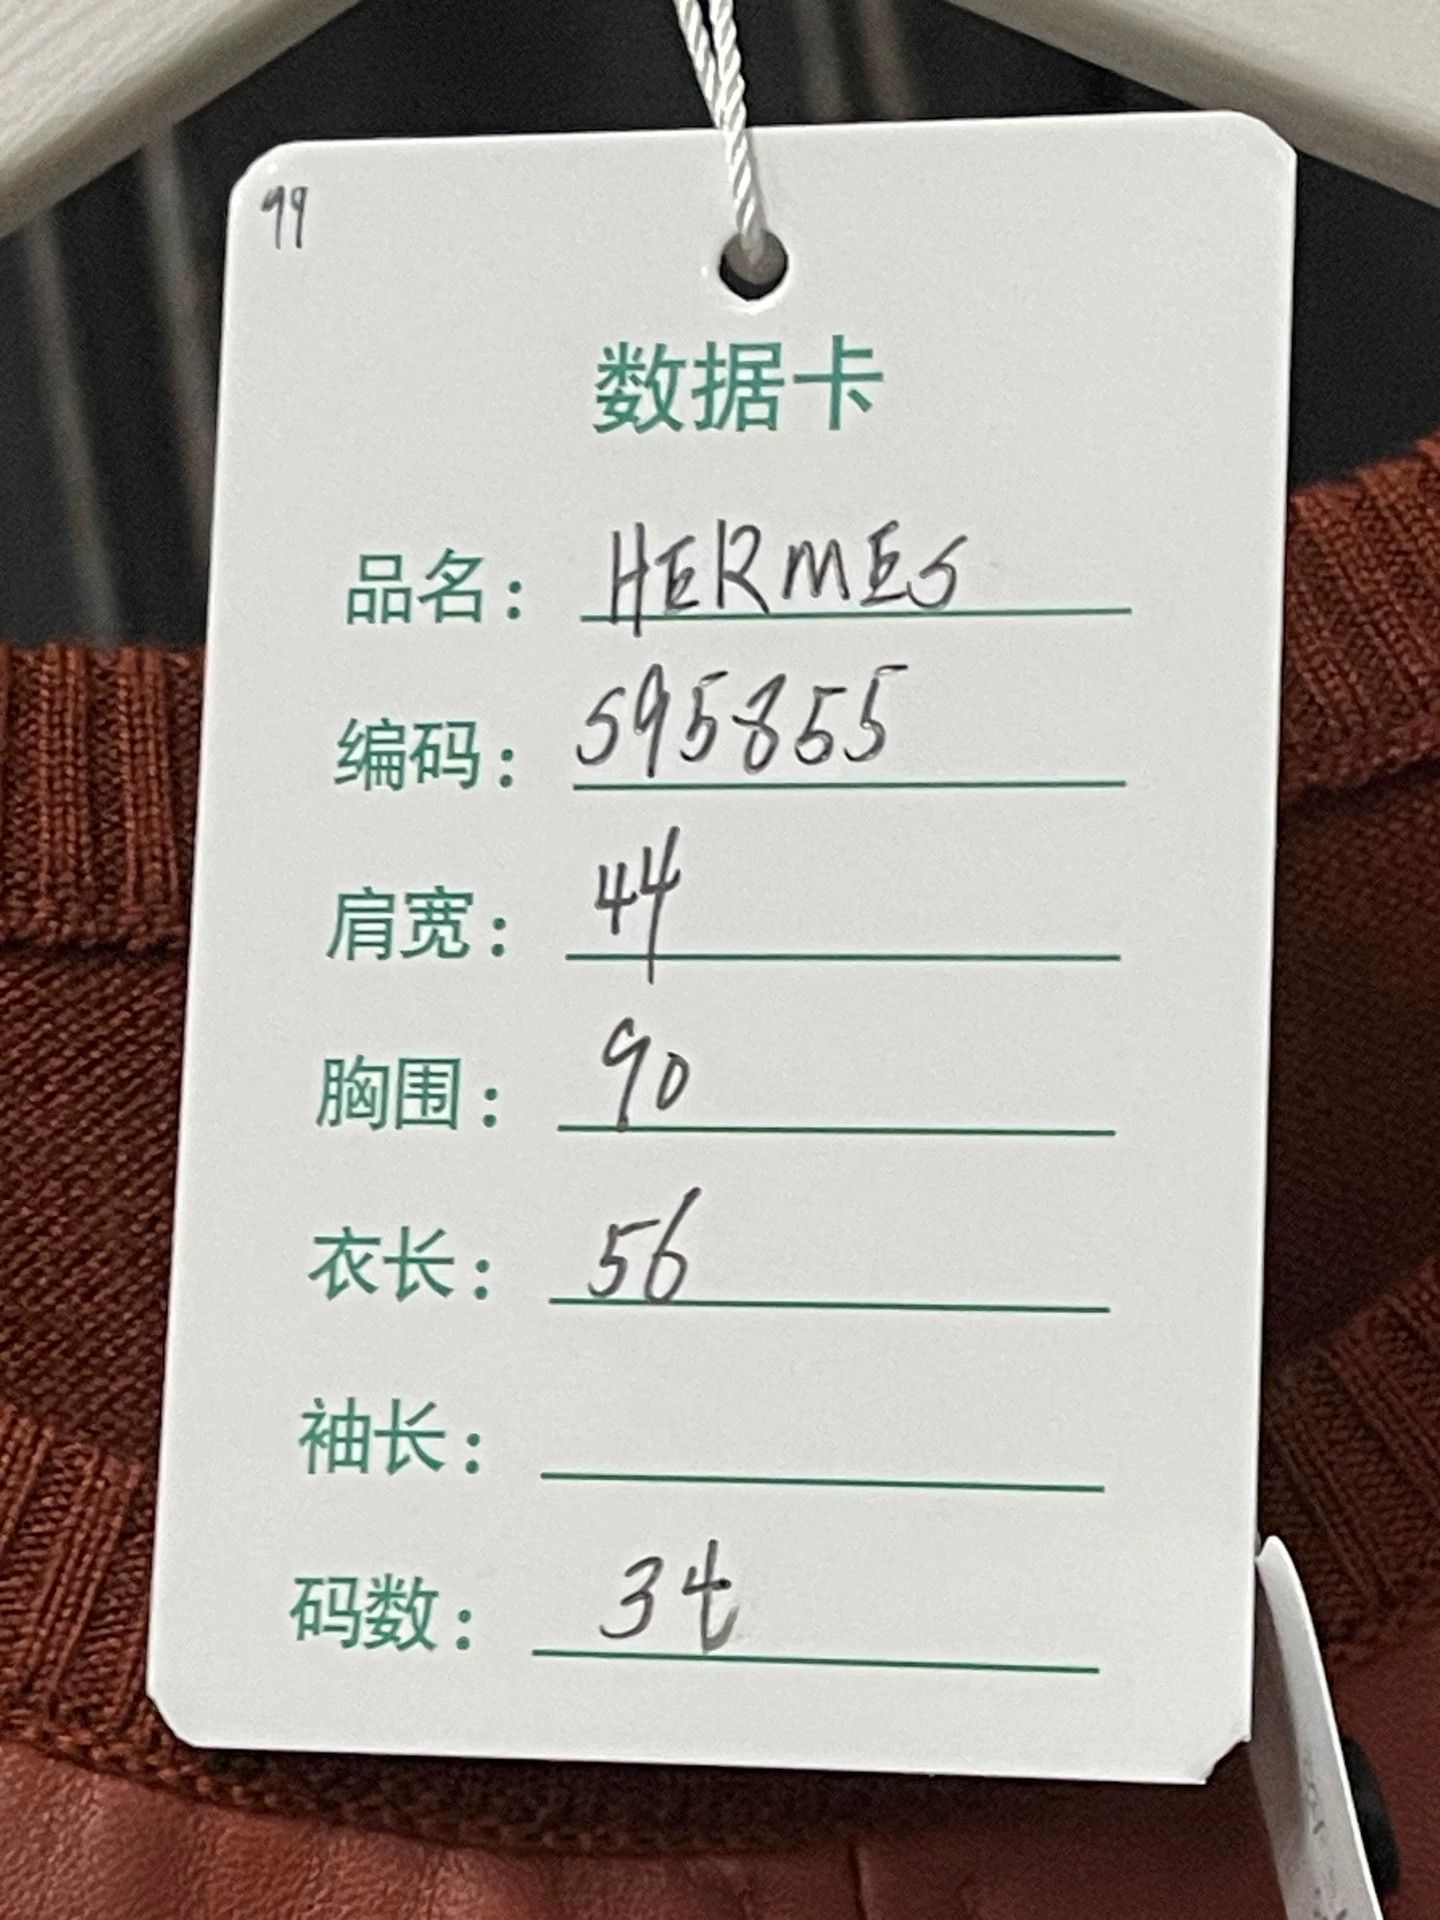 99
数据卡
品名：HERMES
编码：595855
肩宽：44
胸围：90
衣长：56
袖长：
码数：34